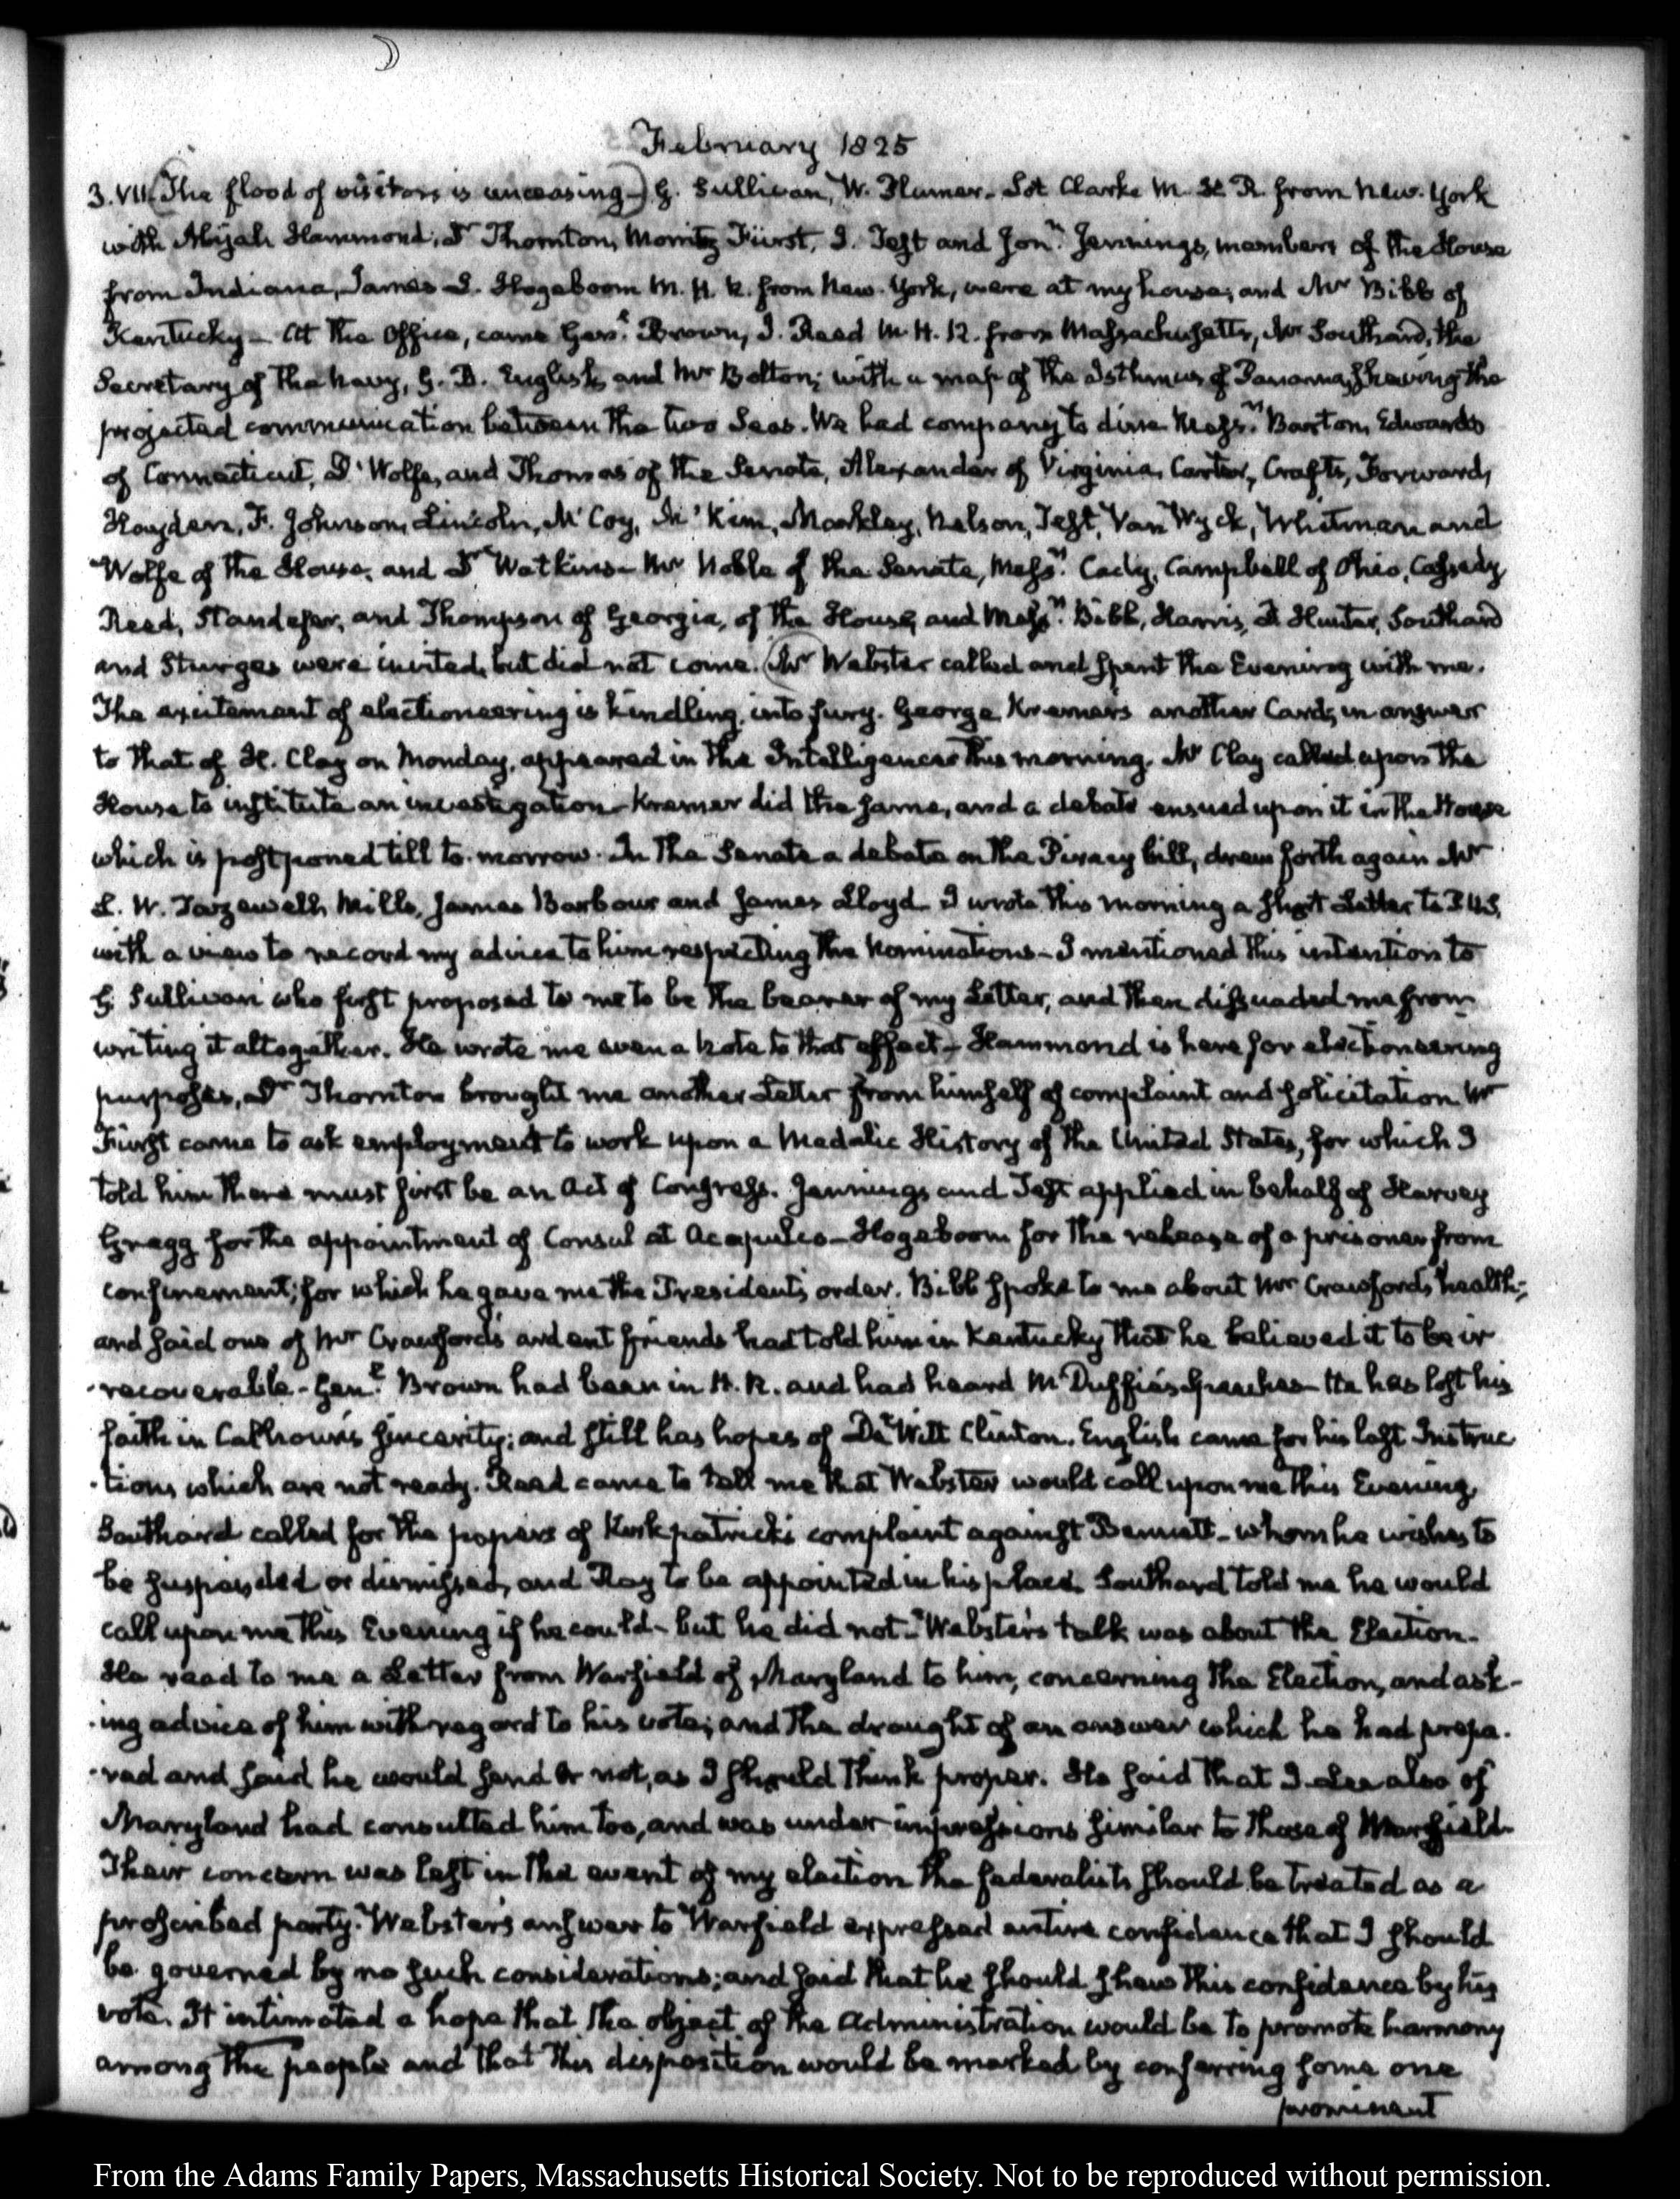 February 1825
3. VII. (The flood of visitors is unceasing-) G. Sullivan, W. Plumer- Lot Clarke M. H. R. from New-York
with Abijah Hammond, Dr Thornton, Moritz Fürst, J. Test and Jonn. Jennings, members of the House
from Indiana, James L. Hogeboom M. H. R. from New-York, were at my house; and Mr Bibb of
Kentucky- At the Office, came Genl. Brown, J. Reed M. H. R. from Massachusetts, Mr Southard, the
Secretary of the Navy, G. B. English, and Mr Bolton; with a map of the Isthmus of Panama, shewing the
projected communication between the two Seas. We had company to dine. Messrs. Barton, Edwards
of Connecticut, D'Wolfe, and Thomas of the Senate, Alexander of Virginia, Carter, Crafts, Forward,
Hayden, F. Johnson, Lincoln, McCoy, McKim, Markley, Nelson, Test, Van Wyck, Whitman and
Wolfe of the House, and Dr Watkins- Mr Noble of the Senate, Messrs. Cady, Campbell of Ohio, Cassedy
Reed, Standefer, and Thompson of Georgia, of the House, and Messrs. Bibb, Harris, D. Hunter, Southard
and Sturges were invited, but did not come. (Mr Webster called and spent the Evening with me.
The excitement of electioneering is kindling into fury. George Kremer's another Card, in answer
to that of H. Clay on Monday, appeared in the Intelligencer this morning. Mr Clay called upon the
House to institute an investigation- Kremer did the same, and a debate ensued upon it in the House
which is postponed till to-morrow. In the Senate a debate on the Piracy bill, drew forth again Mr
L. W. Tazewell, Mills, James Barbour and James Lloyd- I wrote this morning a short Letter to P.U.S.
with a view to record my advice to him respecting the Nominations- I mentioned this intention to
G. Sullivan who first proposed to me to be the bearer of my Letter, and then dissuaded me from
writing it altogether. He wrote me even a Note to that effect- Hammond is here for electioneering
purposes, Dr Thornton brought me another Letter from himself of complaint and solicitation. Mr
Fürst came to ask employment to work upon a Medalic History of the United States, for which I
told him there must first be an Act of Congress. Jennings and Test applied in behalf of Harvey
Gregg for the appointment of Consul at Acapulco- Hogeboom for the release of a prisoner from
confinement; for which he gave me the President's order. Bibb spoke to me about Mr Crawford's health;
and said one of Mr Crawford's ardent friends had told him in Kentucky that he believed it to be ir
-recoverable- Genl. Brown had been in H. R. and had heard McDuffie's speeches- He has lost his
faith in Calhoun's sincerity; and still has hopes of De Witt Clinton. English came for his last Instruc
-tions which are not ready. Reed came to tell me that Webster would call upon me this Evening.
Southard called for the papers of Kirkpatrick's complaint against Bennett- whom he wishes to
be suspended or dismissed, and Ray to be appointed in his place. Southard told me he would
call upon me this Evening if he could- but he did not- Webster's talk was about the Election-
He read to me a Letter from Warfield of Maryland to him, concerning the Election, and ask-
-ing advice of him with regard to his vote; and the draught of an answer which he had prepa-
-red and said he would send or not, as I should think proper. He said that J. Lee also of
Maryland had consulted him too, and was under impressions similar to those of Warfield-
Their concern was lest in the event of my election the federalists should be treated as a
proscribed party. Webster's answer to Warfield expressed entire confidence that I should
be governed by no such considerations; and said that he should shew this confidence by his
vote. It intimated a hope that the object of the Administration would be to promote harmony
among the people and that this disposition would be marked by conferring some one
prominent
From the Adams Family Papers, Massachusetts Historical Society. Not to be reproduced without permission.